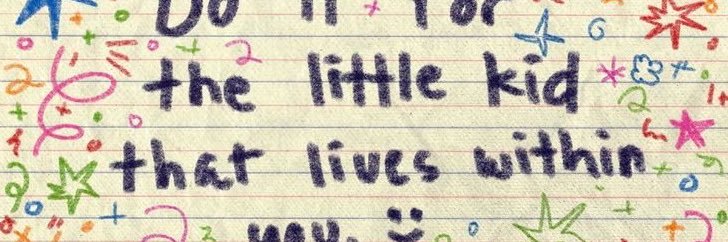 Do it for
the little kid
that lives within
you. :)